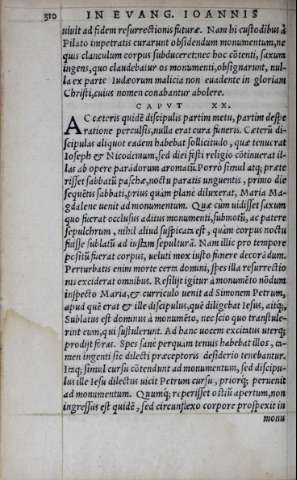 510 IN EVANG. IOANNIS
uiuit ad fidem resurrectionis futuræ. Nam bi custodibus à
Pilato impetratis curarunt obsidendum monumentum, ne
quis clanculum corpus subduceret: nec hoc cõtenti, saxum
ingens, quo claudebatur os monumenti, obsignarunt, nul-
la ex parte Iudæorum malicia non euadente in gloriam
Christi, cuius nomen conabantur abolere.
CAPVT XX.
AC cæteris quidẽ discipulis partim metu, partim despe
ratione perculsis, nulla erat cura funeris. Cæterũ di-
scipulas aliquot eadem habebat sollicitudo, quæ tenuerat
Ioseph & Nicodemum, sed diei festi religio cõtinuerat il-
las ab opere parãdorum aromatũ. Porrò simul atq; præte
rijsset sabbatũ paschæ, noctu paratis unguentis, primo die
sequẽtis sabbati, prius quàm planè diluxerat, Maria Ma-
gdalene uenit ad monumentum. Quæ cùm uidisset saxum
quo fuerat occlusus aditus monumenti, submotũ, ac patere
sepulchrum, nihil aliud suspicata est, quàm corpus noctu
fuisse sublatũ ad iustam sepulturã. Nam illic pro tempore
positũ fuerat corpus, ueluti mox iusto funere decorãdum.
Perturbatis enim morte certa domini, spes illa resurrectio
nis exciderat omnibus. Resilijt igitur à monumẽto nõdum
inspecto Maria, & curriculo uenit ad Simonem Petrum,
apud quẽ erat & ille discipulus, quẽ diligebat Iesus, aitq;,
Sublatus est dominus à monumẽto, nec scio quo transtule-
rint eum, qui sustulerunt. Ad hanc uocem excitatus uterq;
prodijt foràs. Spes sanè perquàm tenuis habebat illos, ta-
men ingenti sic dilecti præceptoris desiderio tenebantur.
Itaq; simul cursu cõtendunt ad monumentum, sed discipu-
lus ille Iesu dilectus uicit Petrum cursu, priorq; peruenit
ad monumentum. Quumq; reperisset ostiũ apertum, non
ingressus est quidẽ, sed circunflexo corpore prospexit in
monu